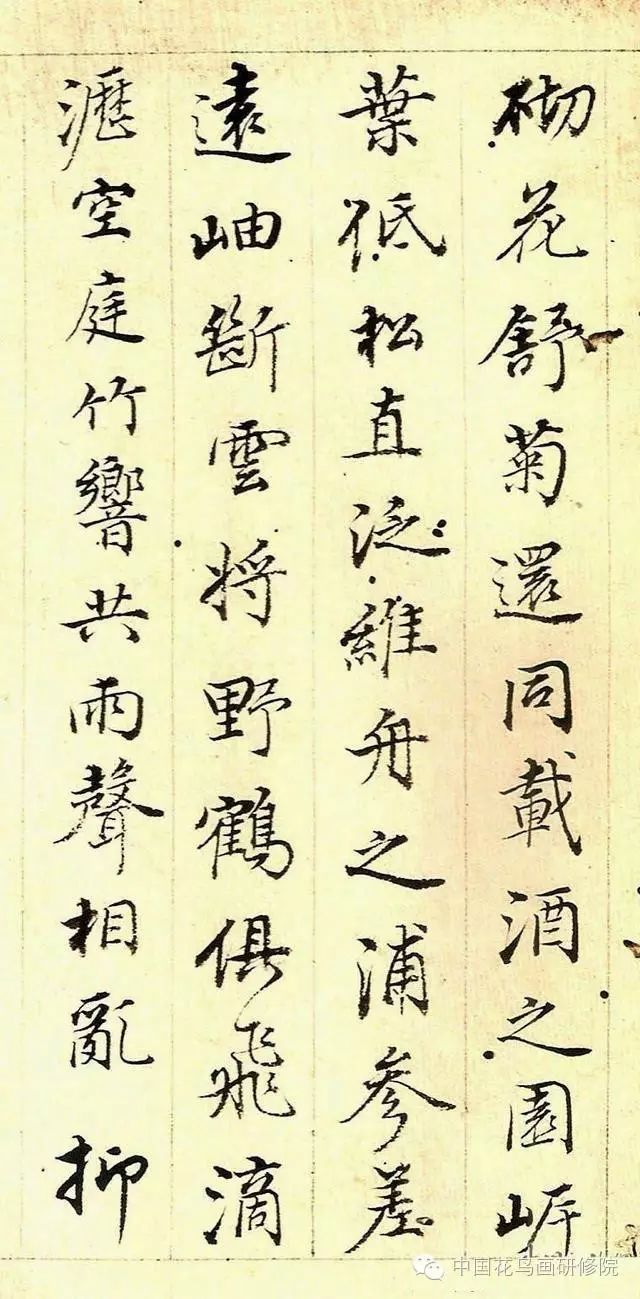 砌花舒菊還同載酒之園岸
葉低松直泛維舟之浦參差
遠岫斷雲将野鶴俱飛滴
瀝空庭竹響共雨聲相亂抑
中国花鸟画研修院